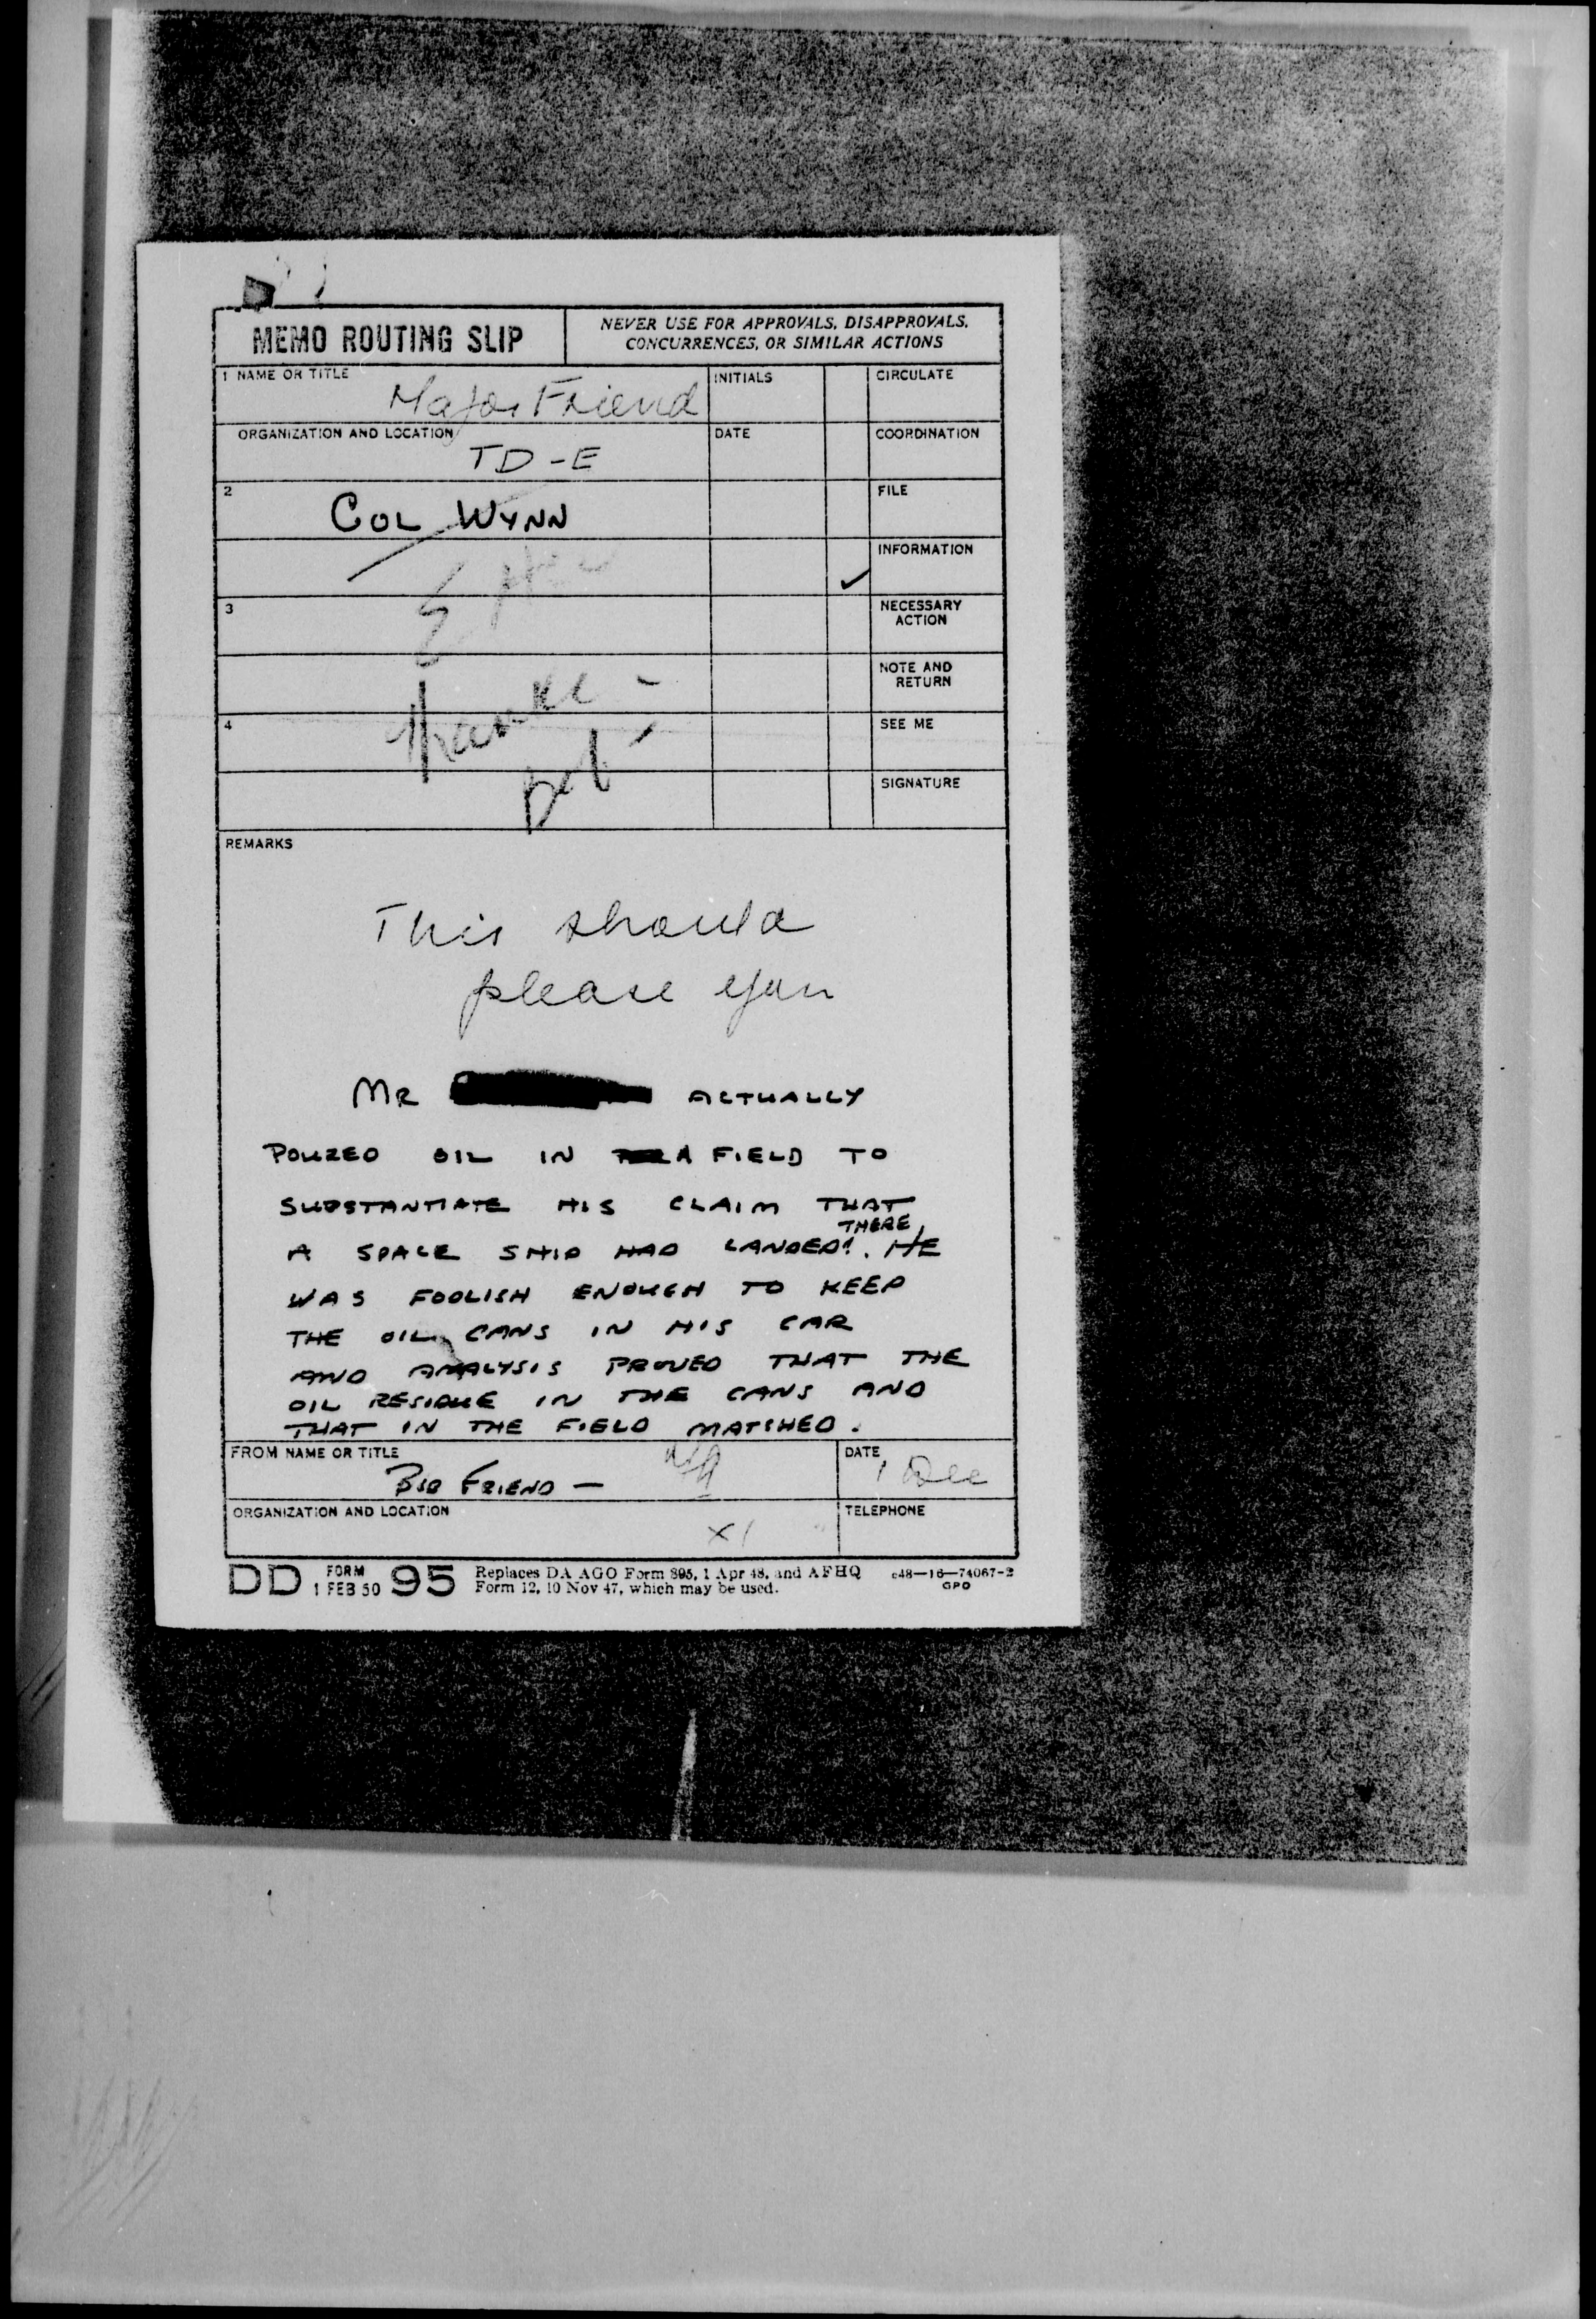 MEMO ROUTING SLIP
NEVER USE FOR APPROVALS, DISAPPROVALS,
CONCURRENCES, OR SIMILAR ACTIONS
1 NAME OR TITLE
Major Friend
INITIALS
CIRCULATE
ORGANIZATION AND LOCATION
TD-E
DATE
COORDINATION
2
COL WYNN
FILE
INFORMATION
✓
3
NECESSARY
ACTION
NOTE AND
RETURN
Thanks -
4
SEE ME
SIGNATURE
REMARKS
This should
please you
MR ACTUALLY
POURED OIL IN A FIELD TO
SUBSTANTIATE HIS CLAIM THAT
THERE
A SPACE SHIP HAD LANDED!. HE
WAS FOOLISH ENOUGH TO KEEP
THE OIL CANS IN HIS CAR
AND ANALYSIS PROVED THAT THE
OIL RESIDUE IN THE CANS AND
THAT IN THE FIELD MATCHED.
FROM NAME OR TITLE
BOB FRIEND -
DATE
1 Dec
ORGANIZATION AND LOCATION
X1
TELEPHONE
DD FORM 1 FEB 50 95
Replaces DA AGO Form 895, 1 Apr 48, and AFHQ
Form 12, 10 Nov 47, which may be used.
c48—16—74067-2
GPO